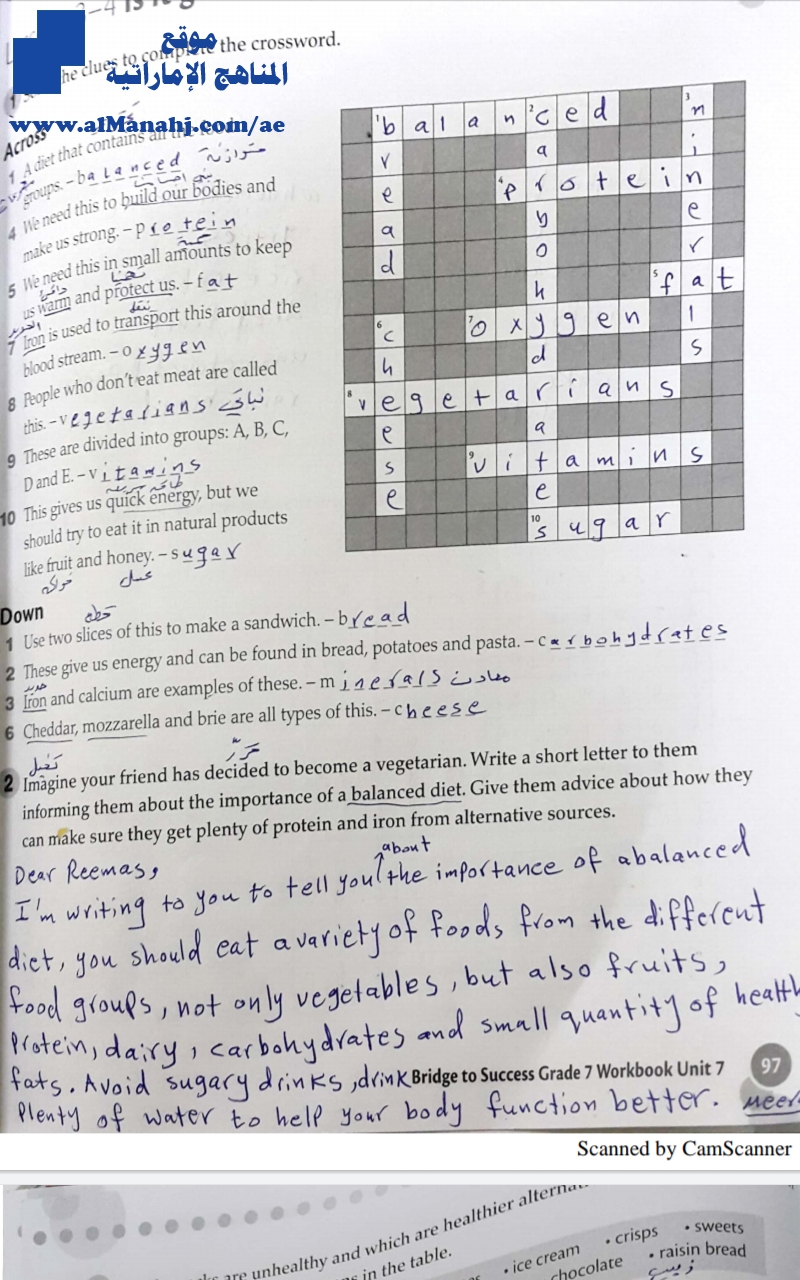 موقع
المناهج الإماراتية
www.alManahj.com/ae
the clues to complete the crossword.
Across
1 A diet that contains all the food
groups. – balanced متوازنة
4 We need this to build our bodies and
make us strong. – protein
5 We need this in small amounts to keep
us warm and protect us. – fat
7 Iron is used to transport this around the
blood stream. – oxygen
8 People who don't eat meat are called
this. – vegetarians نباتي
9 These are divided into groups: A, B, C,
D and E. – vitamins
10 This gives us quick energy, but we
should try to eat it in natural products
like fruit and honey. – sugar
فواكه عسل
1 b a l a n 2 c e d 3 n
r a i
e 4 p r o t e i n
a b e
d o r
h 5 f a t
6 c 7 o x y g e n l
h d s
8 v e g e t a r i a n s
e a
s 9 v i t a m i n s
e e
10 s u g a r
Down
1 Use two slices of this to make a sandwich. – bread
2 These give us energy and can be found in bread, potatoes and pasta. – carbohydrates
3 Iron and calcium are examples of these. – minerals معادن
6 Cheddar, mozzarella and brie are all types of this. – cheese
2 Imagine your friend has decided to become a vegetarian. Write a short letter to them
informing them about the importance of a balanced diet. Give them advice about how they
can make sure they get plenty of protein and iron from alternative sources.
Dear Reemas,
I'm writing to you to tell you about the importance of abalanced
diet, you should eat avariety of foods from the different
food groups, not only vegetables, but also fruits,
Protein, dairy, carbohydrates and small quantity of healthy
fats. Avoid sugary drinks, drink Bridge to Success Grade 7 Workbook Unit 7 97
Plenty of water to help your body function better.
Scanned by CamScanner
are unhealthy and which are healthier
in the table.
• ice cream • crisps • sweets
chocolate • raisin bread
زبيب